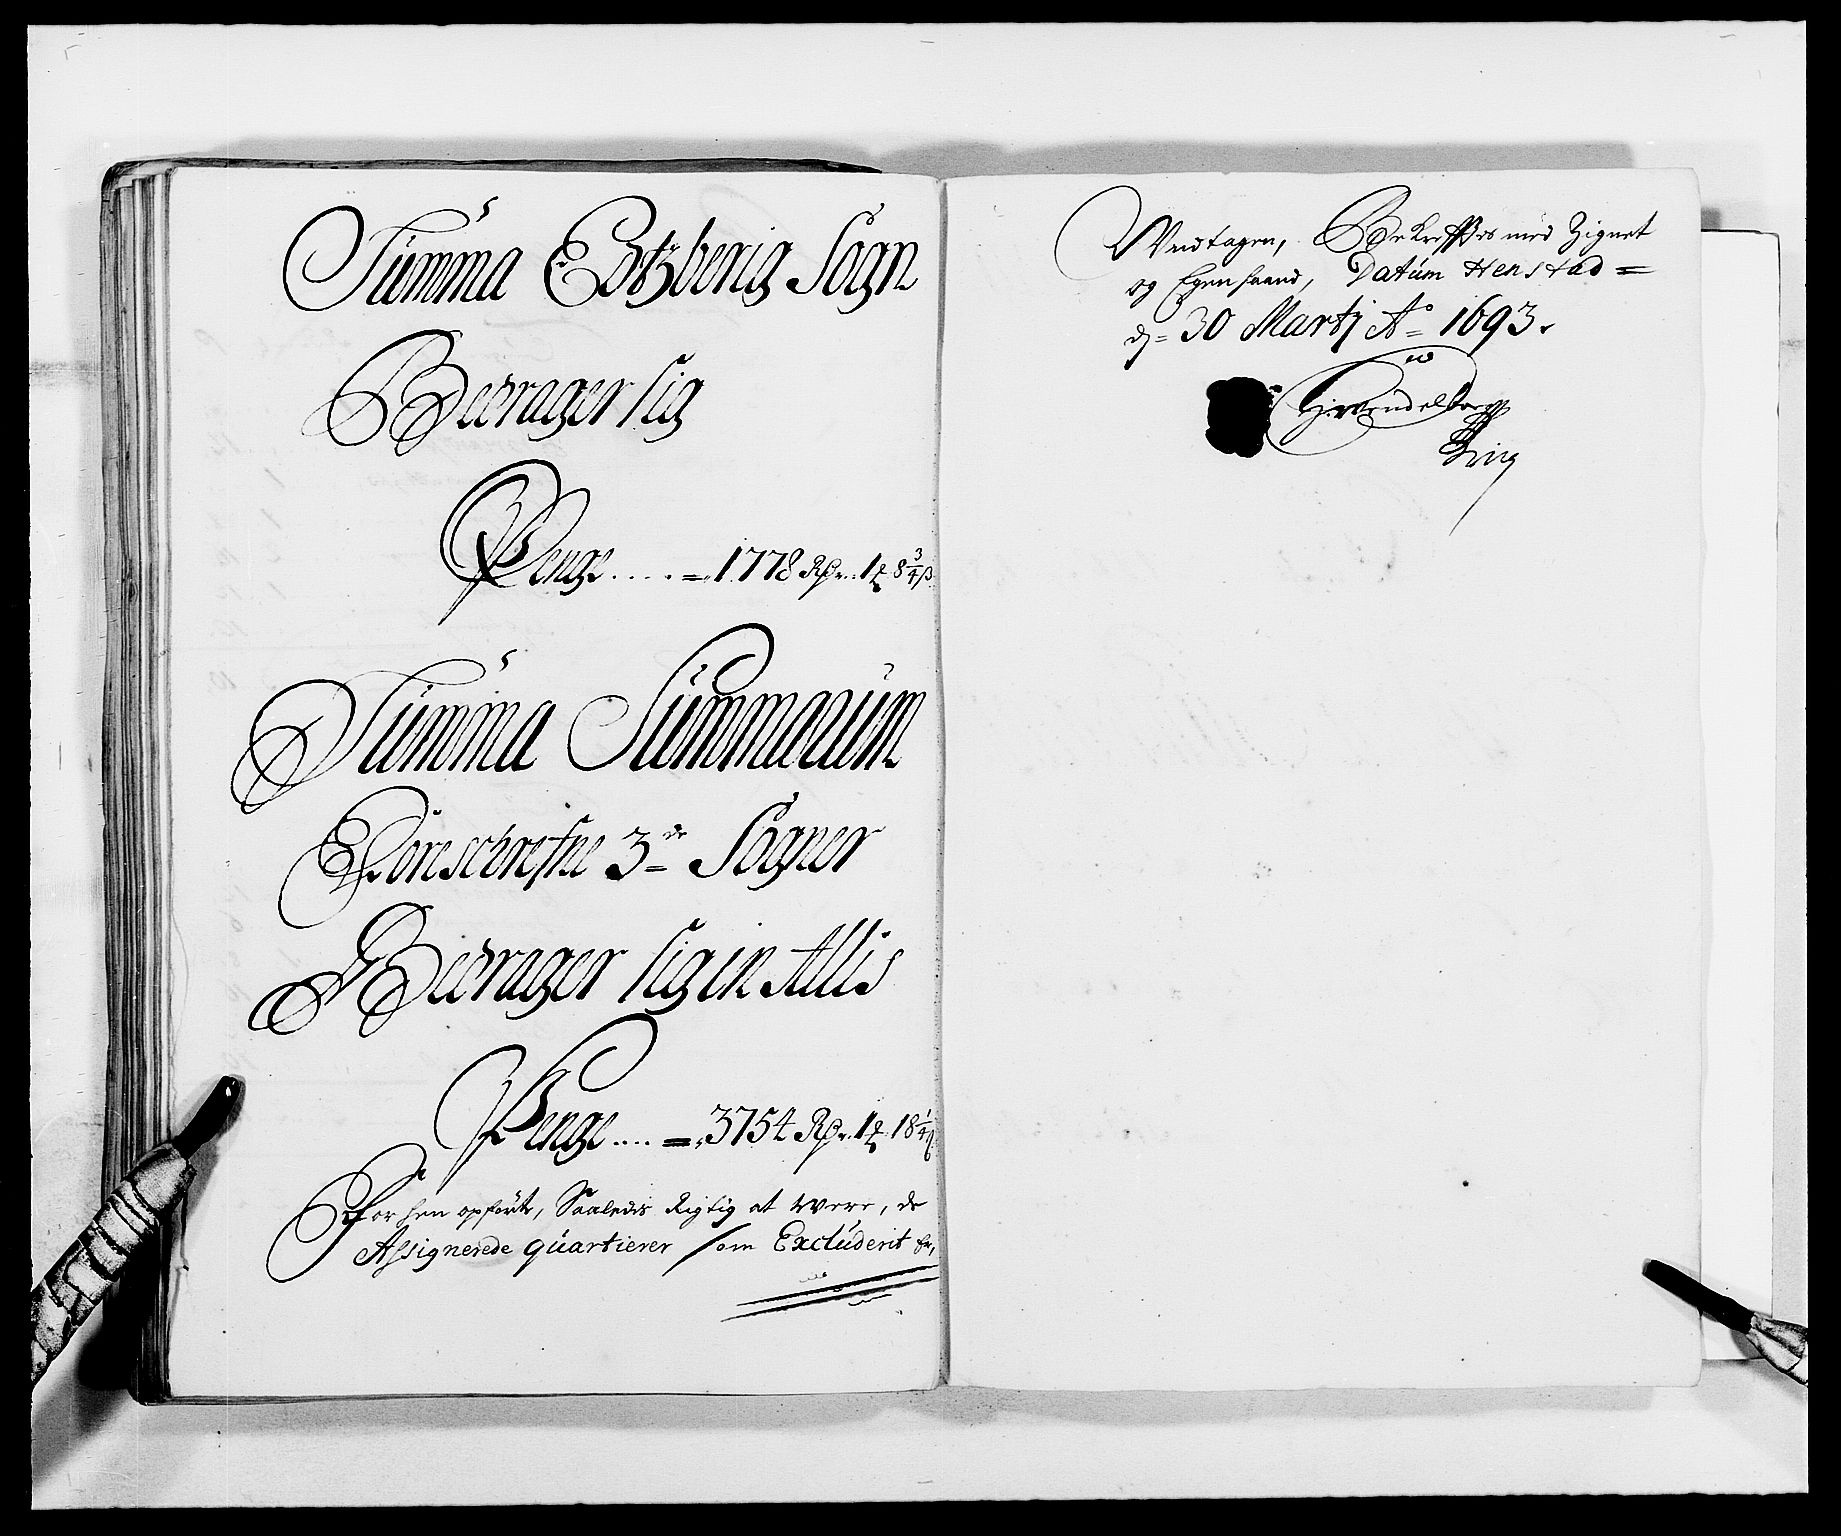 Summa Edtzberig Sogn
Bedrager sig
Penge ..... = 1778 Rdr. 1 8 3/4 β
Summa Summarum
Foreschrefne 3de Sogner
Bedrager sig in Allis
Penge .... = 3754 Rdr. 1 18 1/4 β
For hen opförte, Saaledis Rigtig at were, de
Assignerede quartierer som Excluderit er,
Undtagen, Bekreffter med Zignet
og Egen haand, Datum Henstad =
d = 30 Martj Ao = 1693.